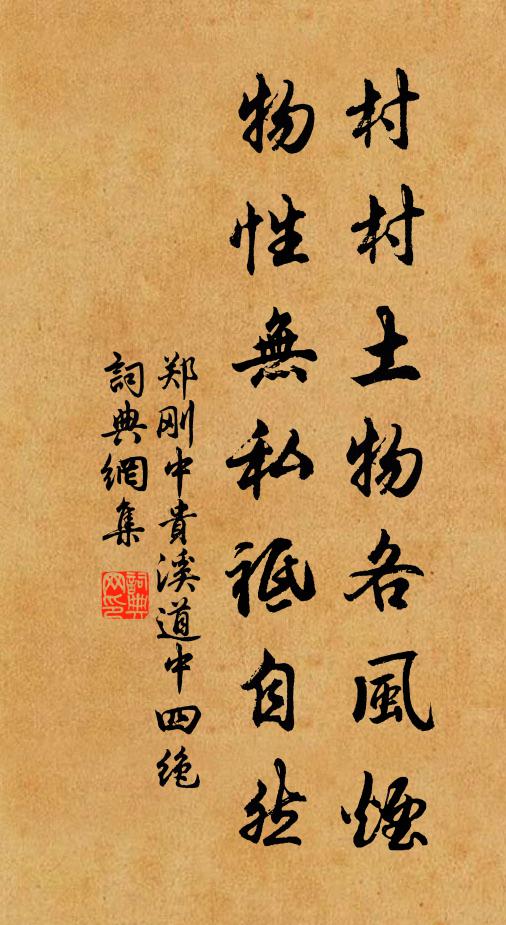 村村土物各風煙
物性無私祗自然
郑刚中貴溪道中四絶
詞典網集
詞典网印